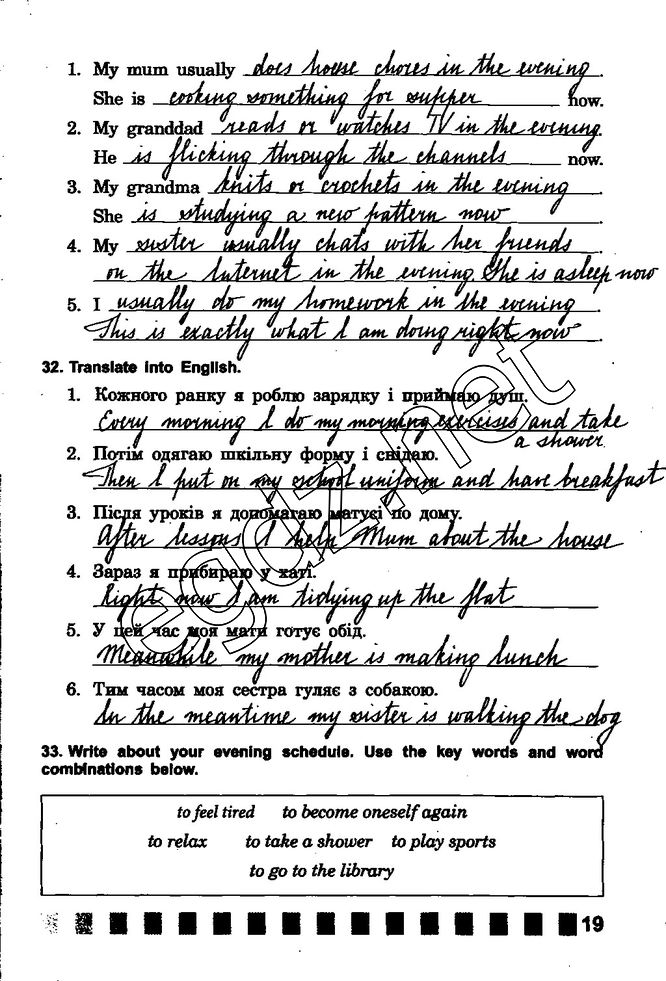 1. My mum usually does house chores in the evening.
She is cooking something for supper now.
2. My granddad reads or watches TV in the evening.
He is flicking through the channels now.
3. My grandma knits or crochets in the evening.
She is studying a new pattern now.
4. My sister usually chats with her friends
on the Internet in the evening. She is asleep now
5. I usually do my homework in the evening.
This is exactly what I am doing right now.
32. Translate into English.
1. Кожного ранку я роблю зарядку і приймаю душ.
Every morning I do my morning exercises and take
a shower.
2. Потім одягаю шкільну форму і снідаю.
Then I put on my school uniform and have breakfast
3. Після уроків я допомагаю матусі по дому.
After lessons I help Mum about the house
4. Зараз я прибираю у хаті.
Right now I am tidying up the flat
5. У цей час моя мати готує обід.
Meanwhile my mother is making lunch
6. Тим часом моя сестра гуляє з собакою.
In the meantime my sister is walking the dog
33. Write about your evening schedule. Use the key words and word
combinations below.
to feel tired to become oneself again
to relax to take a shower to play sports
to go to the library
19
egdz.net